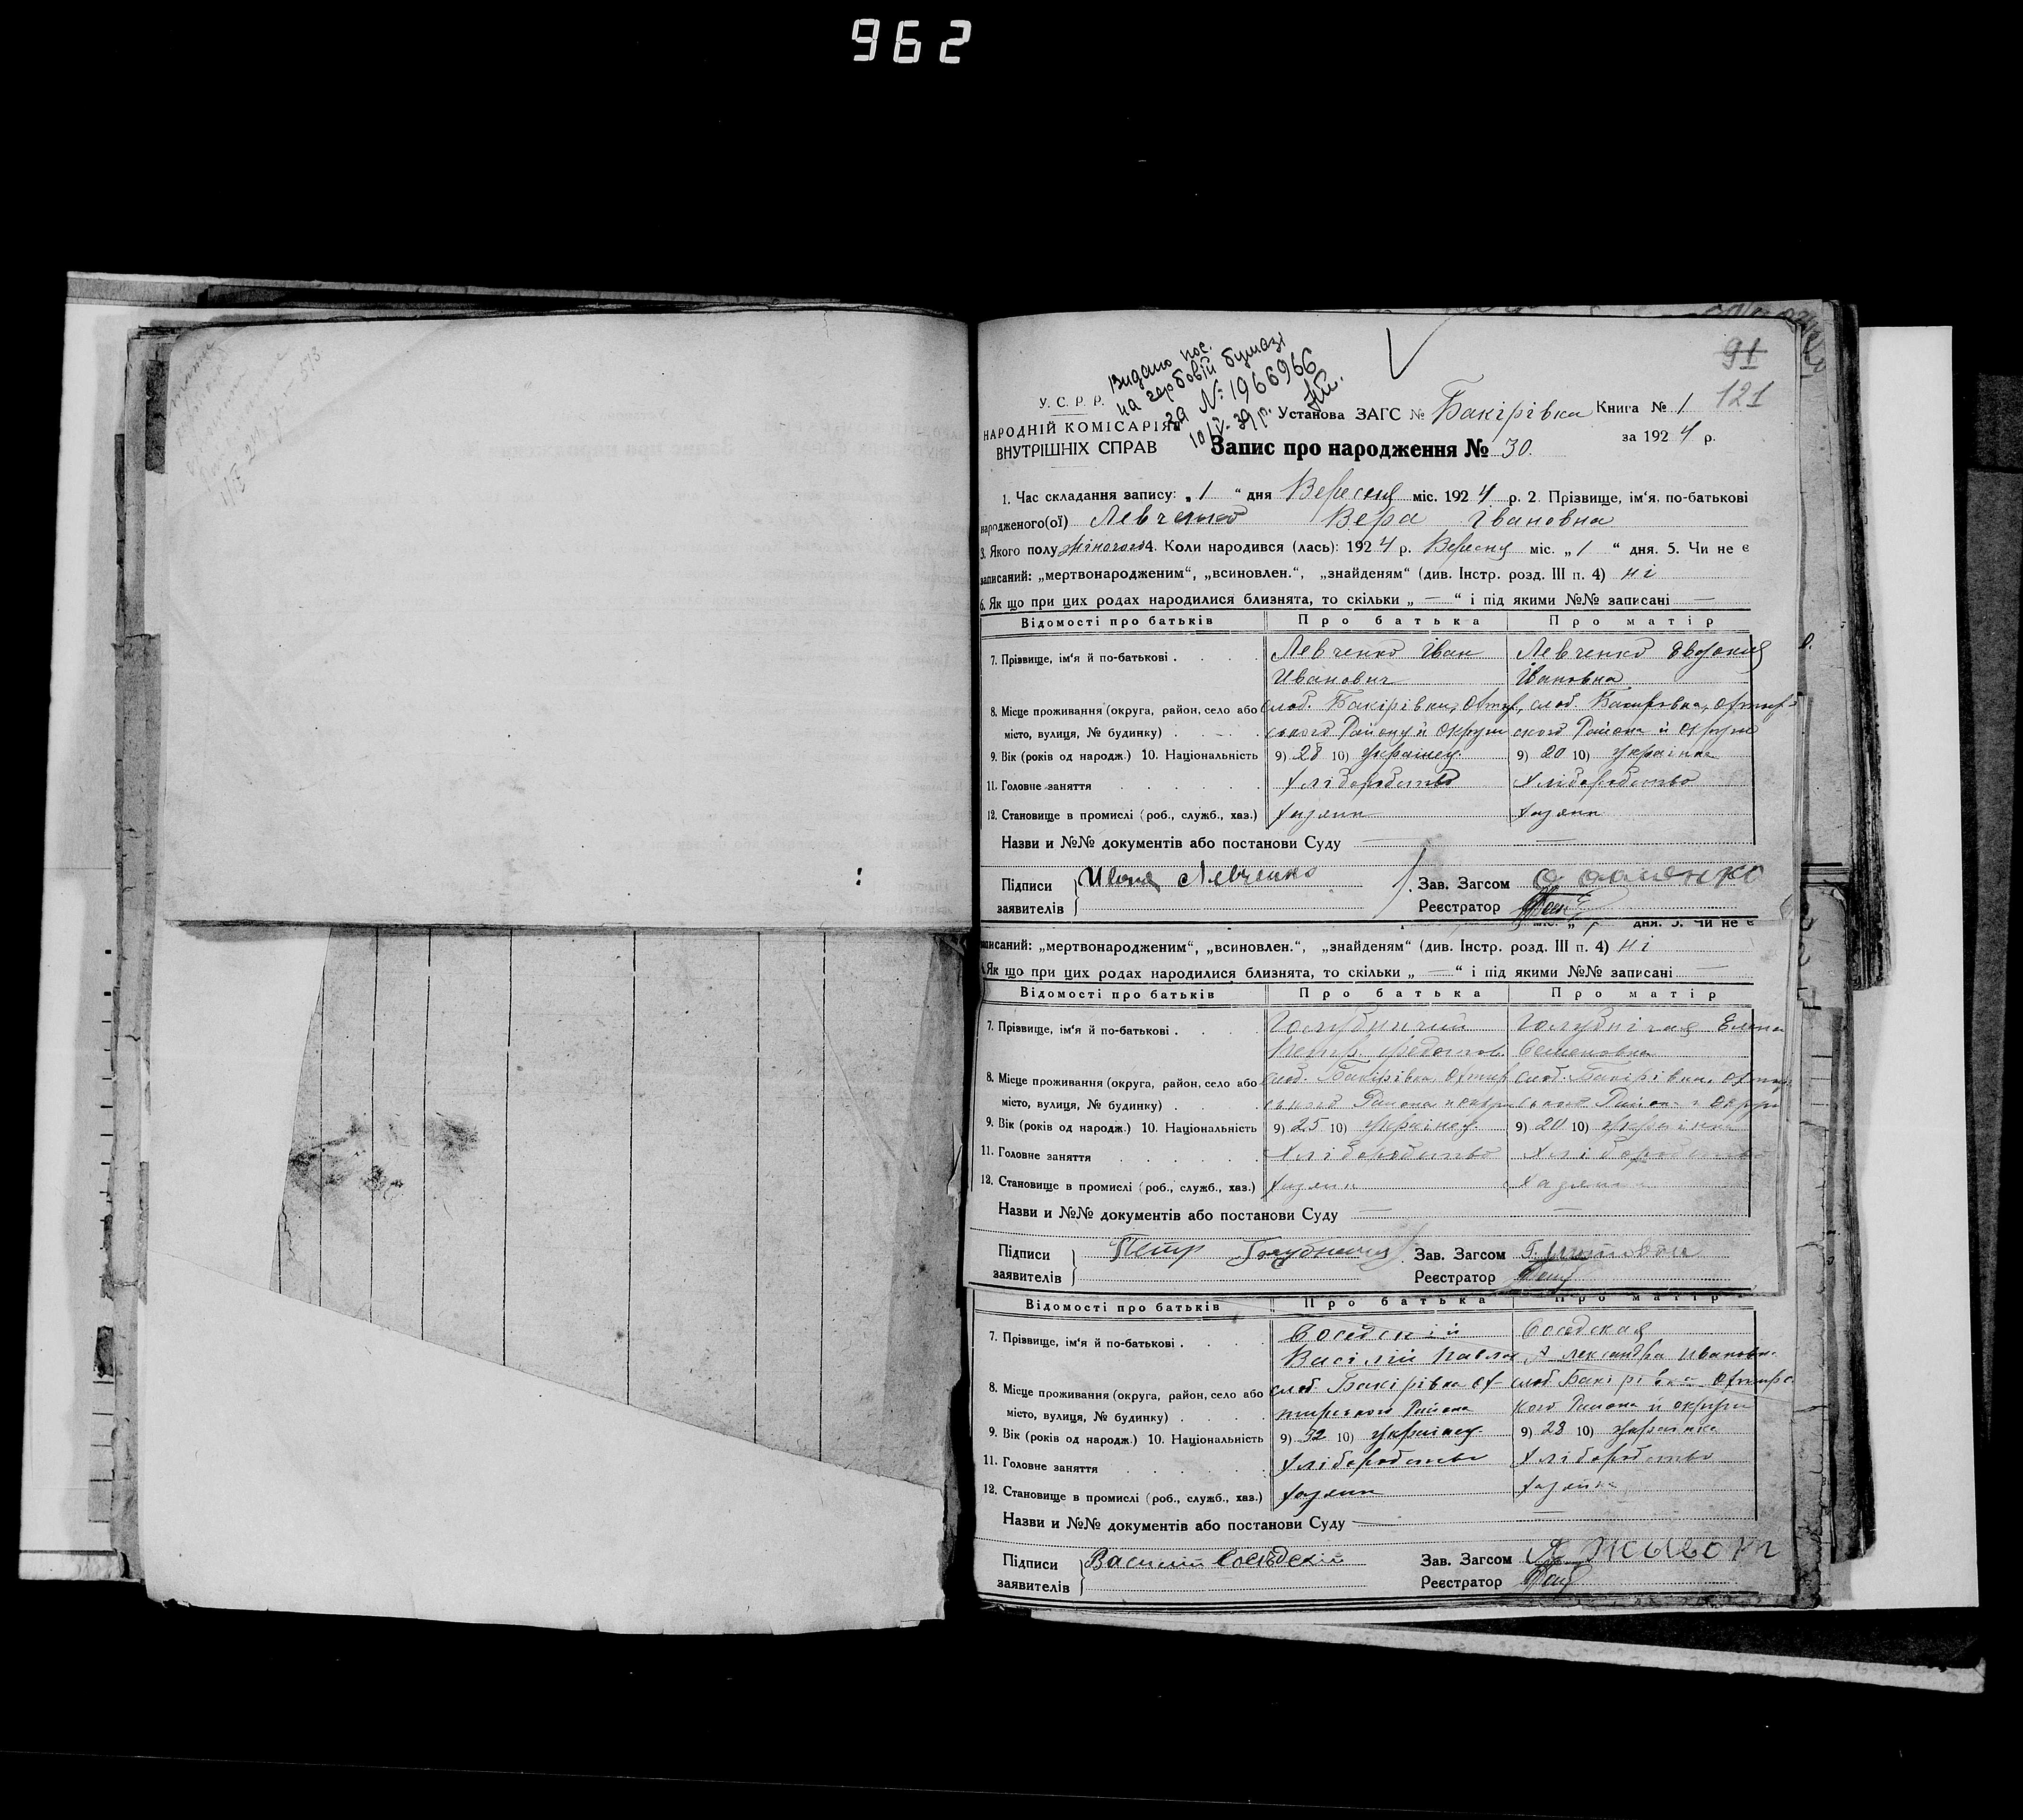 962
573
91
121
Видано пос.
на гербовій бумазі
за № 1966966
10/V-39 р.
У. С. Р. Р.
НАРОДНІЙ КОМІСАРІЯТ
ВНУТРІШНІХ СПРАВ
Установа ЗАГС № Бакірівка Книга № 1
за 1924 р.
Запис про народження № 30.
1. Час складання запису: „1“ дня Вересня міс. 1924 р. 2. Прізвище, ім‘я, по-батькові
народженого(ої) Левченко Вера Івановна
3. Якого полу жіночого 4. Коли народився (лась): 1924 р. Вересня міс. „1“ дня. 5. Чи не є
записаний: „мертвонародженим“, „всиновлен.“, „знайденям“ (див. Інстр. розд. III п. 4) ні
6. Як що при цих родах народилися близнята, то скільки „—“ і під якими №№ записані —
Відомості про батьків Про батька Про матір
7. Прізвище, ім‘я й по-батькові . Левченко Іван Левченко Евдокия
Иванович Івановна
8. Місце проживання (округа, район, село або слоб. Бакірівки, Охтир, слоб. Бакирівка, Охтир
місто, вулиця, № будинку) . ського Району й Округи ского Района й Округи
9. Вік (років од народж.) 10. Національність 9) 28 10) Українец 9) 20 10) Українка
11. Головне заняття Хліборобство Хліборобство
12. Становище в промислі (роб., служб., хаз.) Хазяин Хазяин
Назви и №№ документів або постанови Суду —
Підписи заявителів Ивана Левченко Зав. Загсом
Реєстратор
міс. „ дня. 5. Чи не є
записаний: „мертвонародженим“, „всиновлен.“, „знайденям“ (див. Інстр. розд. III п. 4) ні
6. Як що при цих родах народилися близнята, то скільки „—“ і під якими №№ записані —
Відомості про батьків Про батька Про матір
7. Прізвище, ім‘я й по-батькові . Голубничий Голубнічая Елена
Петр Федотов Семеновна
8. Місце проживання (округа, район, село або слоб. Бакірівка, Охтир слоб. Бакірівка, Охтир
місто, вулиця, № будинку) . ського Района й округи ского Района й Округи
9. Вік (років од народж.) 10. Національність 9) 25 10) Українец 9) 20 10) Українка
11. Головне заняття Хліборобство Хліборобство
12. Становище в промислі (роб., служб., хаз.) Хазяин Хазяин
Назви и №№ документів або постанови Суду —
Підписи заявителів Петр Голубничий Зав. Загсом
Реєстратор
Відомості про батьків Про батька Про матір
7. Прізвище, ім‘я й по-батькові . Соседскій Соседская
Васілій Павлов Александра Ивановн.
8. Місце проживання (округа, район, село або слоб. Бакірівка Ох- слоб. Бакірівка Охтирс
місто, вулиця, № будинку) . тирського Района кого Района й округи
9. Вік (років од народж.) 10. Національність 9) 32 10) Українец 9) 28 10) Українка
11. Головне заняття Хліборобство Хліборобство
12. Становище в промислі (роб., служб., хаз.) Хазяин Хазяин
Назви и №№ документів або постанови Суду —
Підписи заявителів Василий Соседский Зав. Загсом Я Живот
Реєстратор